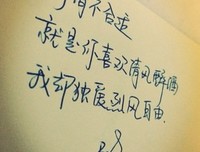 间不合适
就是你喜欢清风醉酒
我却独爱烈风自由.